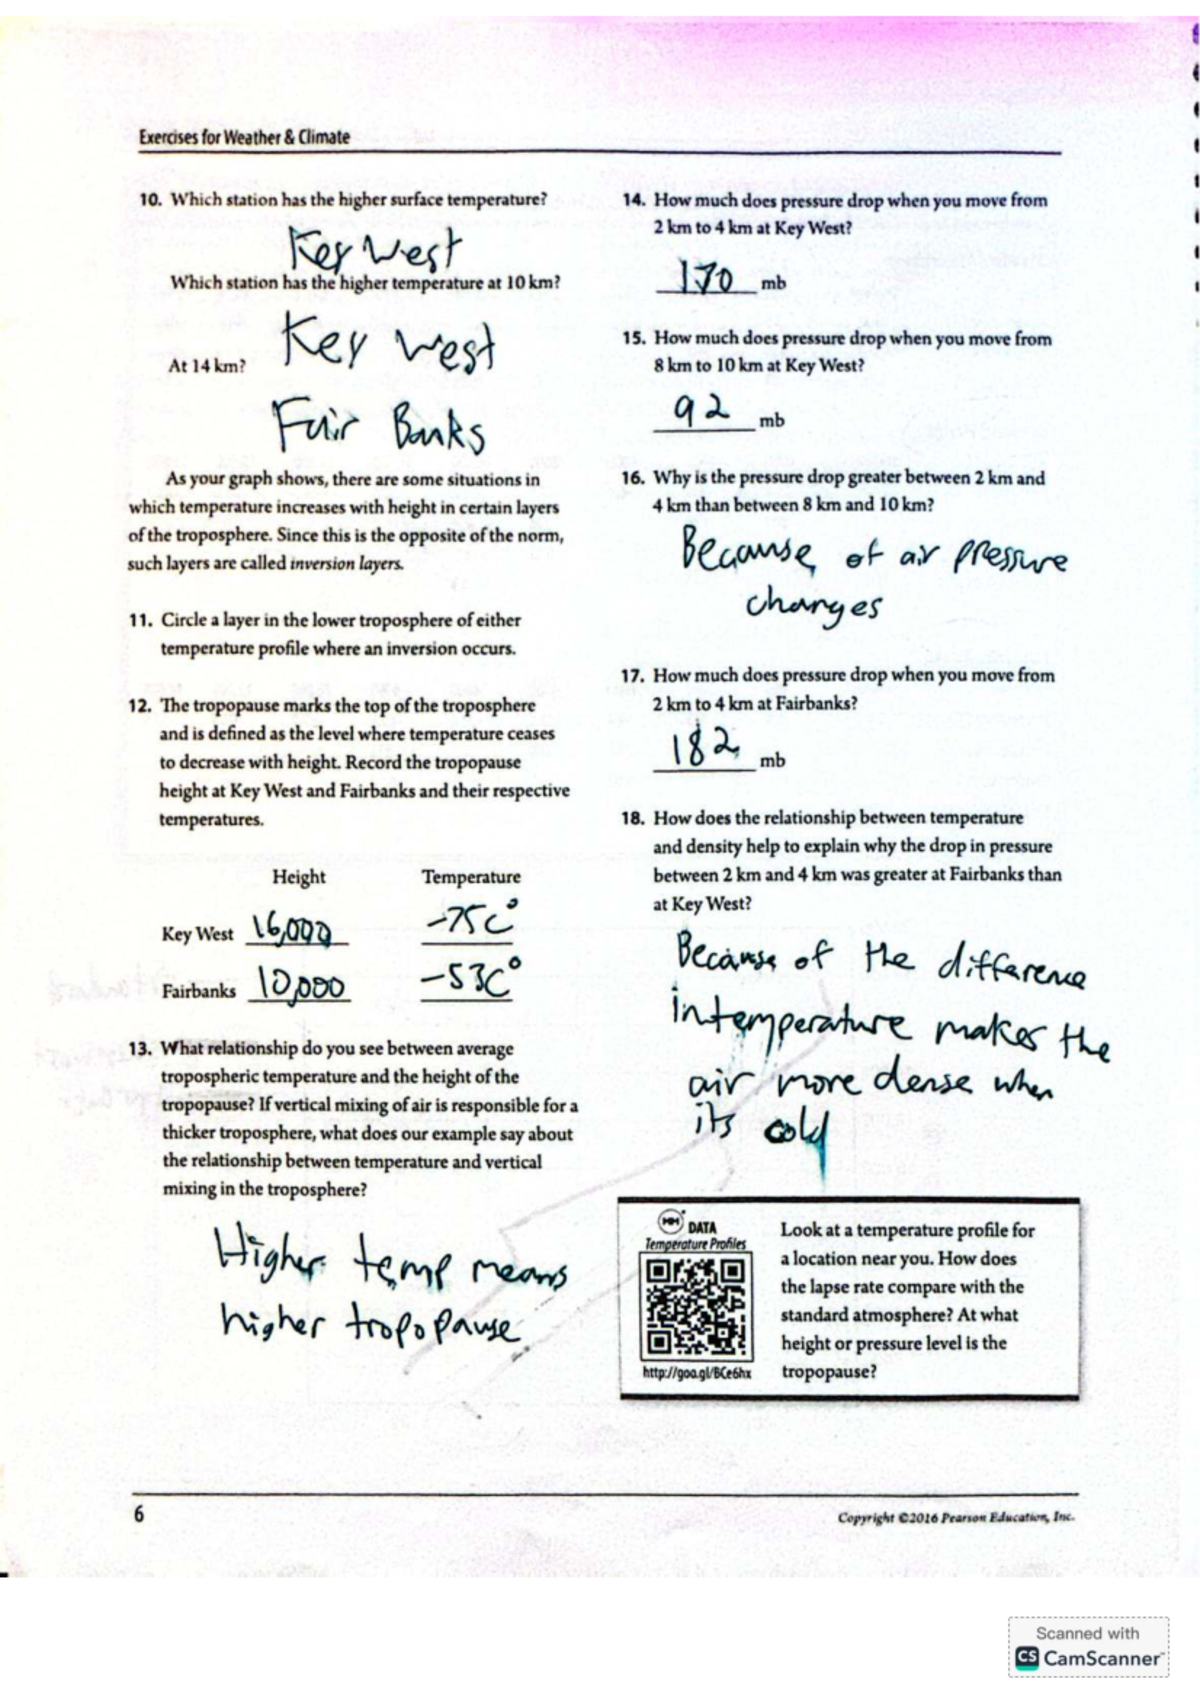 Exercises for Weather & Climate
10. Which station has the higher surface temperature?
Key West
Which station has the higher temperature at 10 km?
Key West
At 14 km?
Fair Banks
As your graph shows, there are some situations in
which temperature increases with height in certain layers
of the troposphere. Since this is the opposite of the norm,
such layers are called inversion layers.
11. Circle a layer in the lower troposphere of either
temperature profile where an inversion occurs.
12. The tropopause marks the top of the troposphere
and is defined as the level where temperature ceases
to decrease with height. Record the tropopause
height at Key West and Fairbanks and their respective
temperatures.
Height Temperature
Key West 16,000 -75C°
Fairbanks 10,000 -53C°
13. What relationship do you see between average
tropospheric temperature and the height of the
tropopause? If vertical mixing of air is responsible for a
thicker troposphere, what does our example say about
the relationship between temperature and vertical
mixing in the troposphere?
Higher temp means
higher tropopause
14. How much does pressure drop when you move from
2 km to 4 km at Key West?
170 mb
15. How much does pressure drop when you move from
8 km to 10 km at Key West?
92 mb
16. Why is the pressure drop greater between 2 km and
4 km than between 8 km and 10 km?
Because of air pressure
changes
17. How much does pressure drop when you move from
2 km to 4 km at Fairbanks?
182 mb
18. How does the relationship between temperature
and density help to explain why the drop in pressure
between 2 km and 4 km was greater at Fairbanks than
at Key West?
Because of the difference
in temperature makes the
air more dense when
its cold
DATA
Temperature Profiles
http://goo.gl/BCe6hx
Look at a temperature profile for
a location near you. How does
the lapse rate compare with the
standard atmosphere? At what
height or pressure level is the
tropopause?
6
Copyright ©2016 Pearson Education, Inc.
Scanned with
CS CamScanner